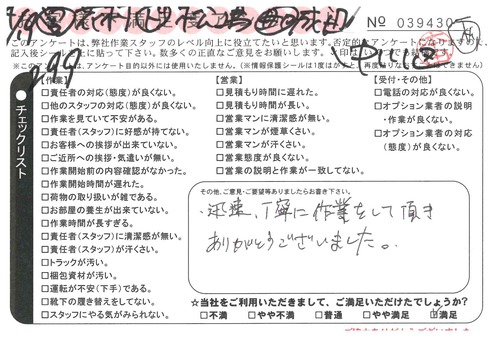 No 039430
このアンケートは、弊社作業スタッフのレベル向上に役立てたいと思います。否定的
記入後シールを上に貼って下さい。数多くの正直なご意見をお
※これは、アンケート目的以外には使用いたしません。(※情報保護シールは1度はがすと、再度貼りなおしができません)
チェックリスト
【作業】
□責任者の対応(態度)が良くない。
□他のスタッフの対応(態度)が良くない。
□作業を見ていて不安がある。
□責任者(スタッフ)に好感が持てない。
□お客様への挨拶が出来ていない。
□ご近所への挨拶・気遣いが無い。
□作業開始前の内容確認がなかった。
□作業開始時間が遅れた。
□荷物の取り扱いが雑である。
□お部屋の養生が出来ていない。
□作業時間が長すぎる。
□責任者(スタッフ)に清潔感が無い。
□責任者(スタッフ)が汗くさい。
□トラックが汚い。
□梱包資材が汚い。
□運転が不安(下手)である。
□靴下の履き替えをしてない。
□スタッフにやる気がみられない。
【営業】
□見積もり時間に遅れた。
□見積もり時間が長い。
□営業マンに清潔感が無い。
□営業マンが煙草くさい。
□営業マンが汗くさい。
□営業態度が良くない。
□営業の説明と作業が一致してない。
【受付・その他】
□電話の対応が良くない。
□オプション業者の説明
・作業が良くない。
□オプション業者の対応
(態度)が良くない。
その他、ご意見・ご要望等ありましたらお書き下さい。
迅速、丁寧に作業をして頂き
ありがとうございました。
☆当社をご利用いただきまして、ご満足いただけたでしょうか?
□不満 □やや不満 □普通 □やや満足 ☑満足